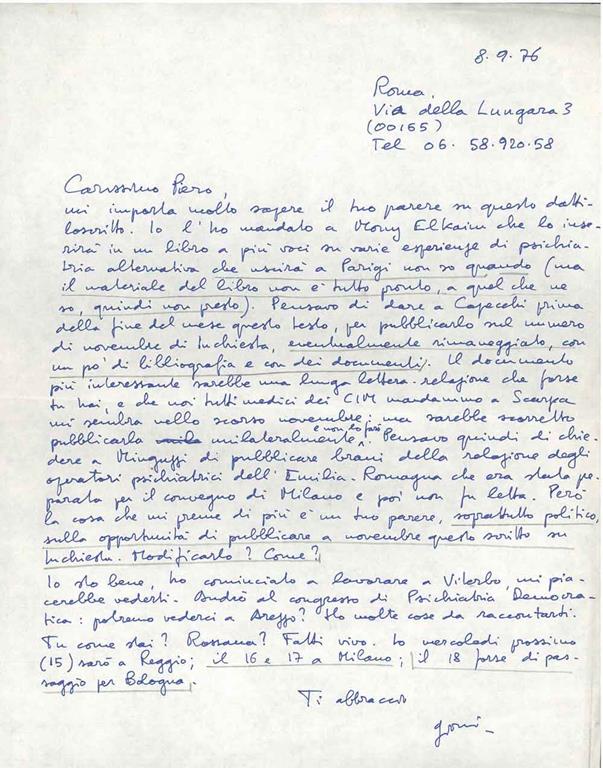 8.9.76
Roma,
Via della Lungara 3
(00165)
Tel 06. 58.920.58
Carissimo Piero,
mi importa molto sapere il tuo parere su questo datti-
loscritto. Io l'ho mandato a Mony Elkaim che lo inse-
rirà in un libro a più voci su varie esperienze di psichia-
tria alternativa che uscirà a Parigi non so quando (ma
il materiale del libro non è tutto pronto, a quel che ne
so, quindi non presto). Pensavo di dare a Capecchi prima
della fine del mese questo testo, per pubblicarlo sul numero
di novembre di Inchiesta, eventualmente rimaneggiato, con
un po' di bibliografia e con dei documenti. Il documento
più interessante sarebbe una lunga lettera-relazione che forse
tu hai, e che noi tutti medici dei CIM mandammo a Scarpa
mi sembra nello scorso novembre; ma sarebbe scorretto
pubblicarla unilateralmente. Pensavo quindi di chie-
dere a Minguzzi di pubblicare brani della relazione degli
operatori psichiatrici dell'Emilia-Romagna che era stata pre-
parata per il convegno di Milano e poi non fu letta. Però
la cosa che mi preme di più è un tuo parere, soprattutto politico,
sulla opportunità di pubblicare a novembre questo scritto su
Inchiesta. Modificarlo? Come?
Io sto bene, ho cominciato a lavorare a Viterbo, mi pia-
cerebbe vederti. Andrò al congresso di Psichiatria Democra-
tica: potremo vederci a Arezzo? Ho molte cose da raccontarti.
Tu come stai? Rossana? Fatti vivo. Io mercoladì prossimo
(15) sarò a Reggio; il 16 e 17 a Milano; il 18 forse di pas-
saggio per Bologna.
Ti abbraccio